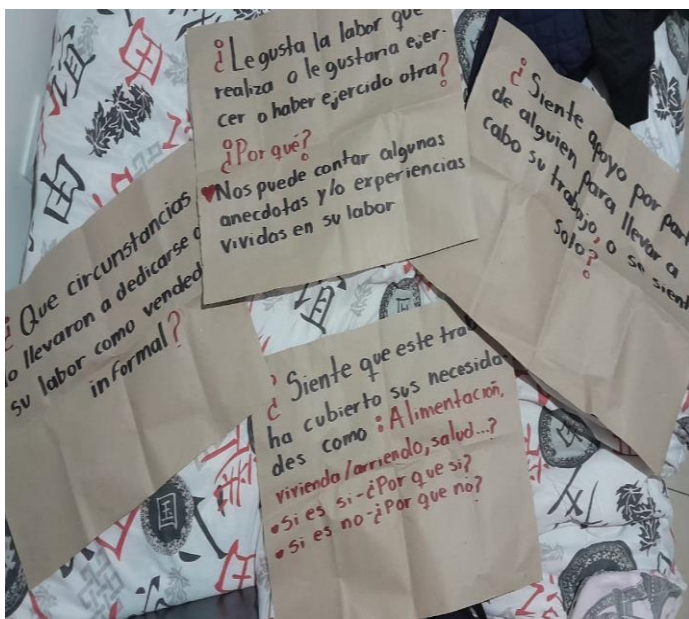 ¿Le gusta la labor que
realiza o le gustaria ejer-
cer o haber ejercido otra?
¿Por qué?
Nos puede contar algunas
anecdotas y/o experiencias
vividas en su labor
¿Siente apoyo por part
de alguien para llevar a
cabo su trabajo, o se sient
solo?
¿Que circunstancias
lo llevaron a dedicarse a
su labor como vended
informal?
¿Siente que este tra
ha cubierto sus necesida-
des como: Alimentación,
vivienda/arriendo, salud...?
•Si es si-¿Por que si?
•Si es no-¿Por que no?
国